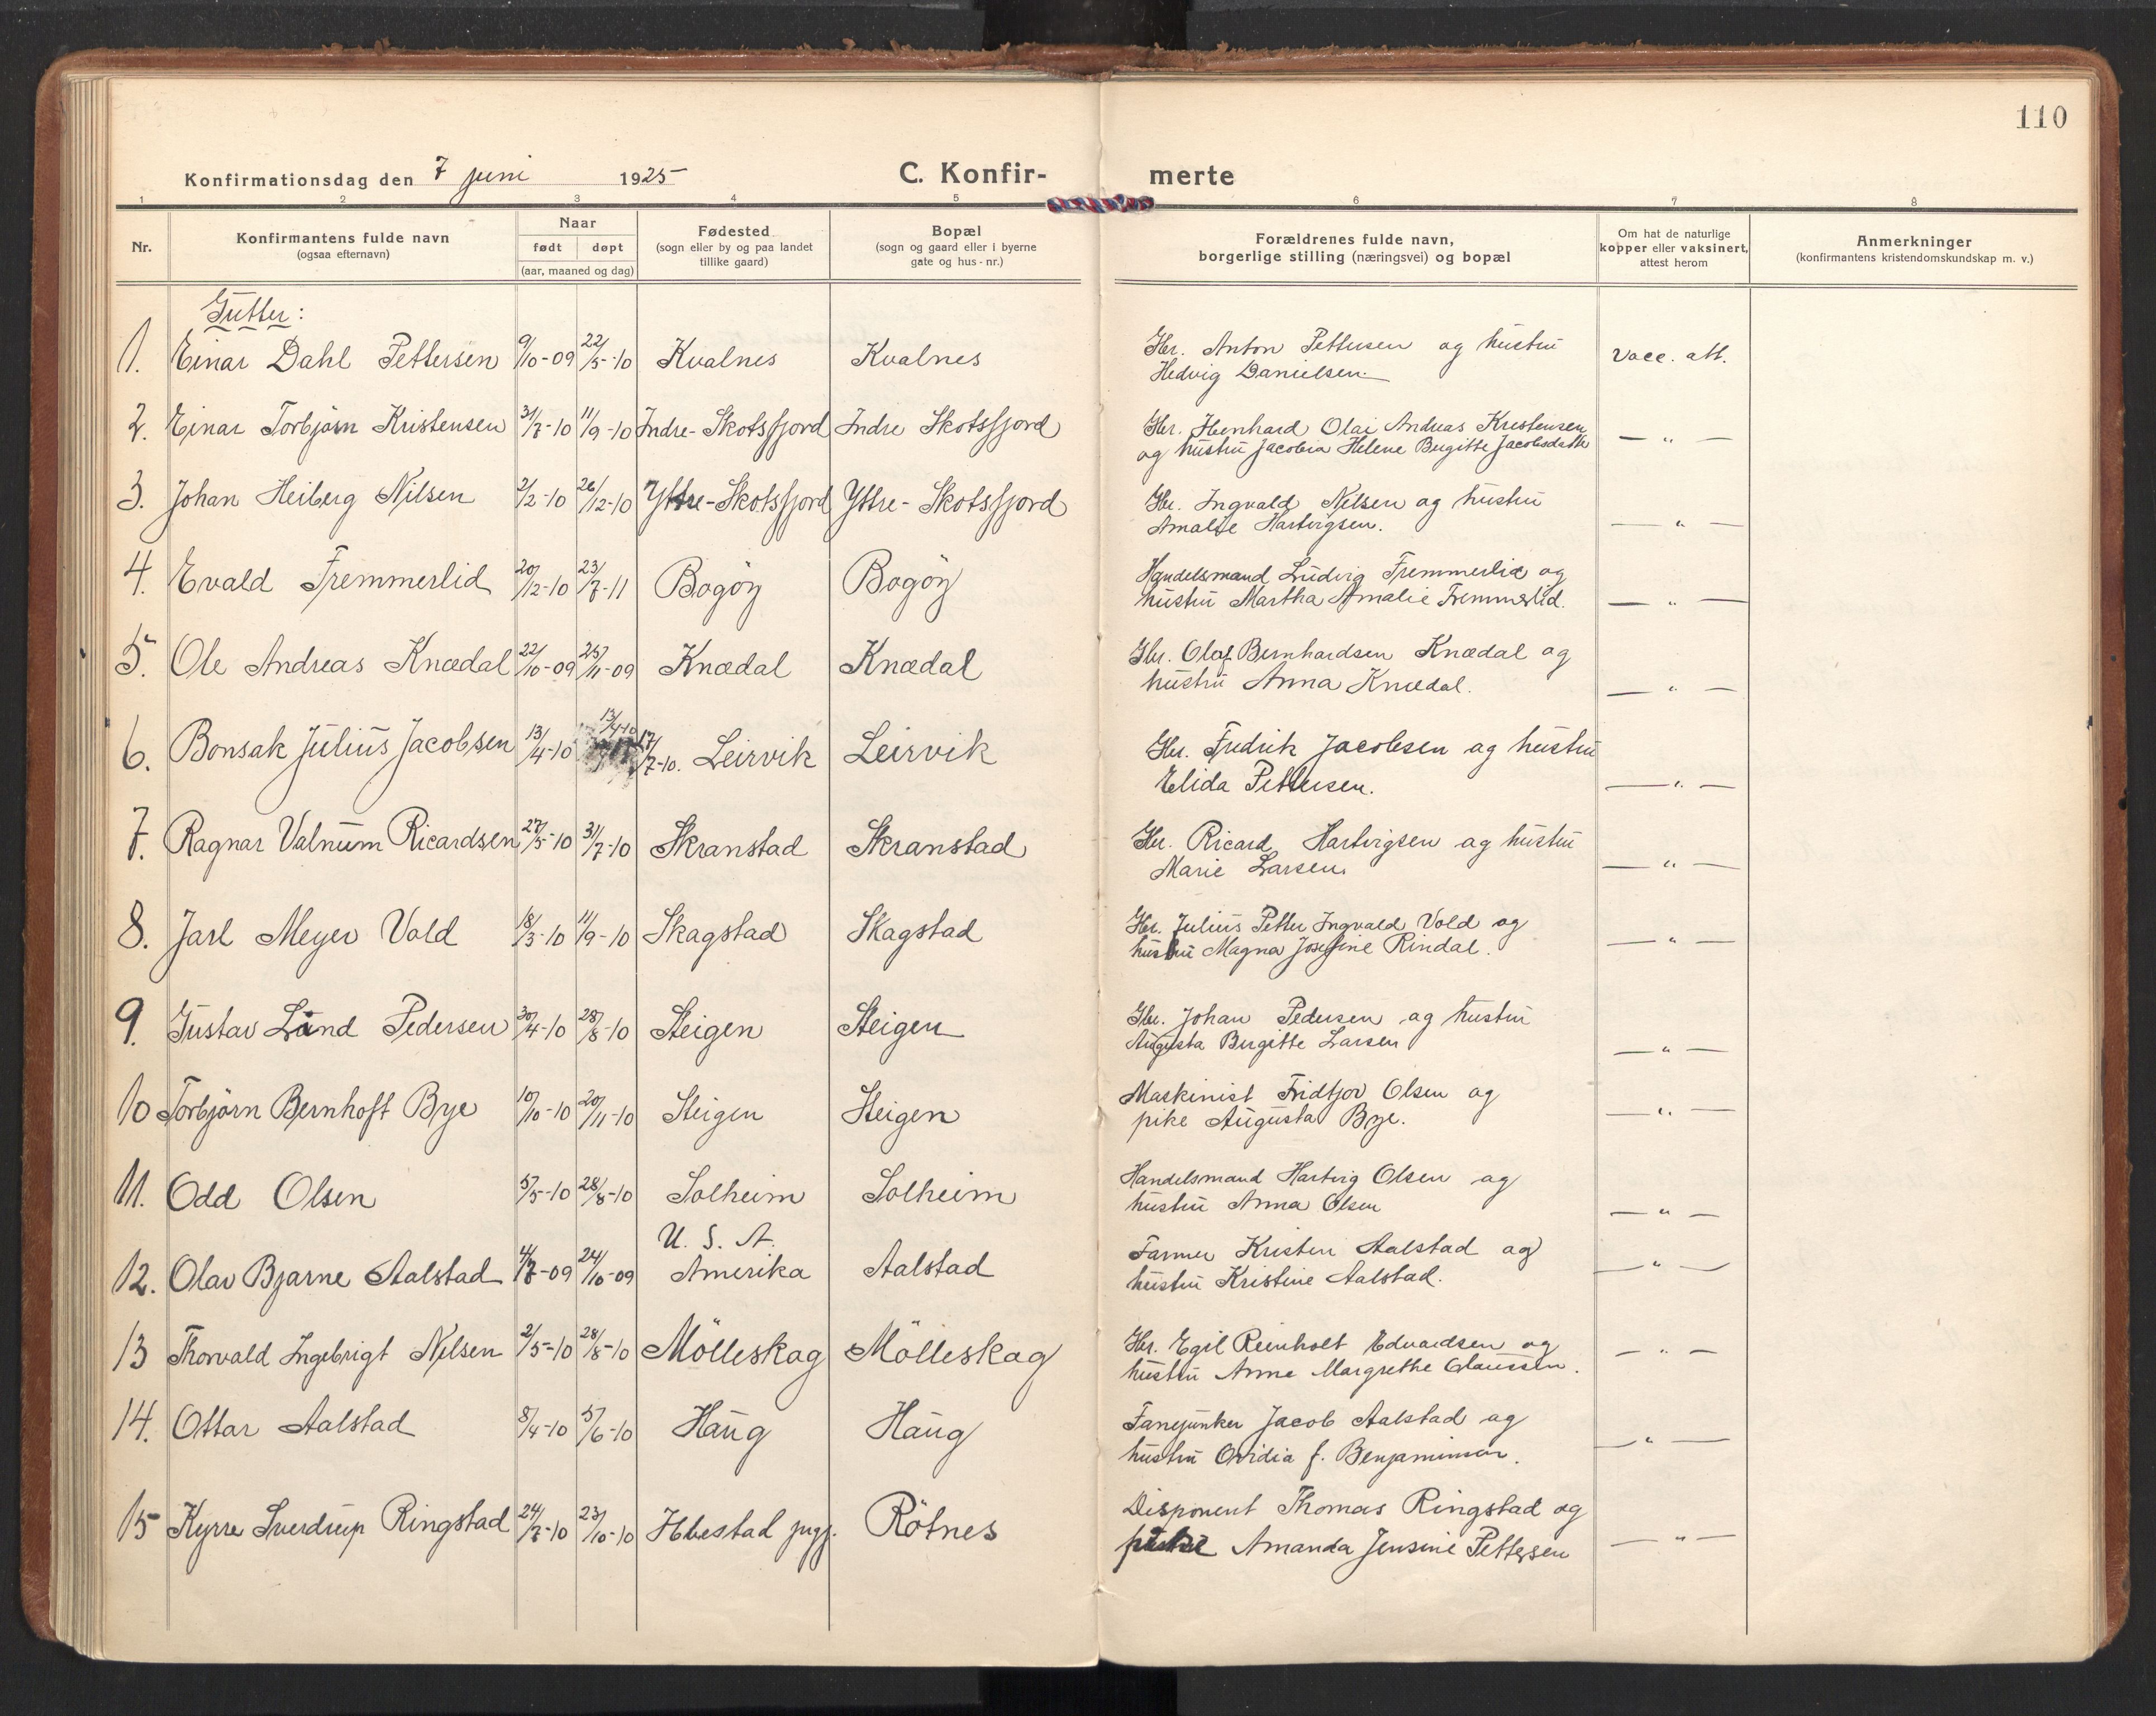 110
Konfirmationsdag den 7 juni 1925
C. Konfir-
merte
1 2 3 4 5 6 7 8
Nr.
Konfirmantens fulde navn
(ogsaa efternavn)
Naar
født døpt
(aar, maaned og dag)
Fødested
(sogn eller by og paa landet
tillike gaard)
Bopæl
(sogn og gaard eller i byerne
gate og hus-nr.)
Forældrenes fulde navn,
borgerlige stilling (næringsvei) og bopæl
Om hat de naturlige
kopper eller vaksinert,
attest herom
Anmerkninger
(konfirmantens kristendomskundskap m. v.)
Gutter:
1. Einar Dahl Pettersen 9/10-09 22/5-10 Kvalnes Kvalnes
Gbr. Anton Pettersen og hustru
Hedvig Danielsen.
Vacc. att.
2. Einar Torbjørn Kristensen 31/7-10 11/9-10 Indre-Skotsfjord Indre Skotsfjord
Gbr. Olai Andreas Kristensen
og hustru Jacobia Helene Birgitte Jacobsdatter
— " —
3. Johan Heiberg Nilsen 2/2-10 26/12-10 Yttre-Skotsfjord Yttre-Skotsfjord
Gbr. Ingvald Nilsen og hustru
Amalie Hartvigsen.
— " —
4. Evald Fremmerlid 20/12-10 23/7-11 Bogöy Bogöy
Handelsmand Ludvig Fremmerlid og
hustru Martha Amalie Fremmerlid.
— " —
5. Ole Andreas Knædal 22/10-09 25/11-09 Knædal Knædal
Gbr. Olaf Bernhardsen Knædal og
hustru Anna Knædal.
— " —
6. Bonsak Julius Jacobsen 13/4-10 13/4-10 17/7-10. Leirvik Leirvik
Gbr. Fredrik Jacobsen og hustru
Elida Pettersen.
— " —
7. Ragnar Valnum Ricardsen 27/5-10 31/7-10 Skranstad Skranstad
Gbr. Ricard Hartvigsen og hustru
Marie Larsen.
— " —
8. Jarl Meyer Vold 18/3-10 11/9-10 Skagstad Skagstad
Gbr. Julius Petter Ingvald Vold og
hustru Magna Josefine Rindal.
— " —
9. Gustav Lind Pedersen 30/4-10 28/8-10 Steigen Steigen
Gbr. Johan Pedersen og hustru
Augusta Birgitte Larsen
— " —
10 Torbjørn Bernhoft Bye 10/10-10 20/11-10 Steigen Steigen
Maskinist Fridtjov Olsen og
pike Augusta Bye.
— " —
11. Odd Olsen 5/5-10 28/8-10 Solheim Solheim
Handelsmand Hartvig Olsen og
hustru Anna Olsen
— " —
U. S. A.
12. Olav Bjarne Aalstad 4/8-09 24/10-09 Amerika Aalstad
Farmer Kristen Aalstad og
hustru Kristine Aalstad.
— " —
13 Thorvald Ingebrigt Nilsen 2/5-10 28/8-10 Mölleskog Mölleskog
Gbr. Egil Reinholt Edvardsen og
hustru Anne Margrethe Claussen.
— " —
14. Ottar Aalstad 8/4-10 5/6-10 Haug Haug
Fanejunker Jacob Aalstad og
hustru Ovidia f. Benjaminsen.
— " —
15 Kyrre Sverdrup Ringstad 24/7-10 23/10-10 Rötnes
Disponent Thomas Ringstad og
Amanda Jensine Pettersen
— " —